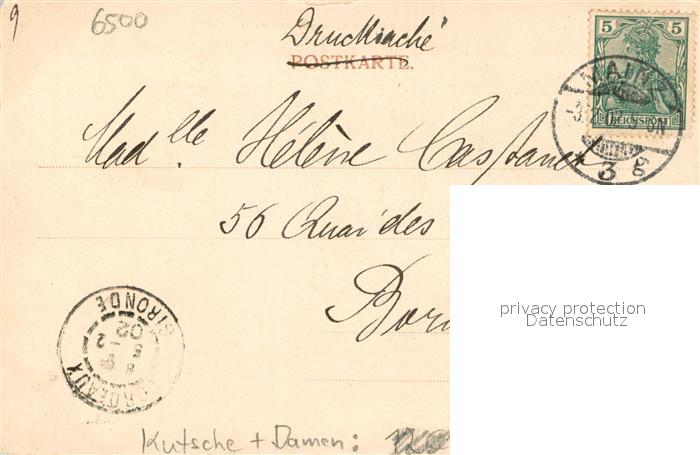 9
6500
Drucksache
POSTKARTE.
5 5
REICHSPOST
MAINZ
3
Mad^lle Hélène Castanet
56 Quai des
Bor
privacy protection
Datenschutz
BORDEAUX GIRONDE
8
5 - 2
02
Kutsche + Damen: